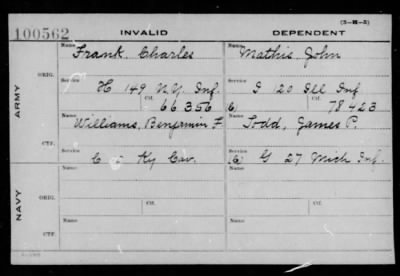 (3-M-3)
100562 INVALID DEPENDENT
Name Name
Frank, Charles Mathis, John
ORIG. Service Service
H 149 N.Y. Inf. I 120 Ill Inf
Ctf. 66356 (6) Ctf. 78423
ARMY
Name Name
Williams, Benjamin F Todd, James P.
CTF. Service Service
C Ky Cav. (6) G 27 Mich Inf.
Name Name
ORIG. Service Service
Ctf. Ctf.
NAVY
Name Name
CTF. Service Service